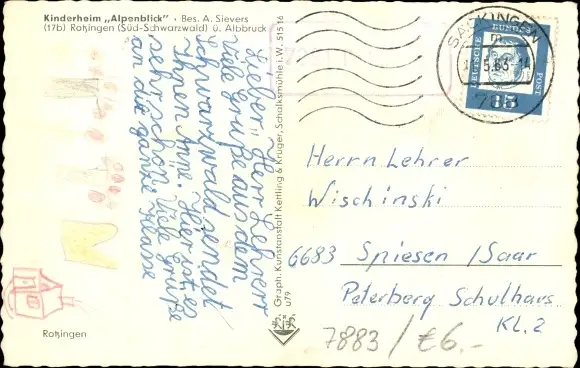 Kinderheim „Alpenblick" · Bes. A. Sievers
(17b) Rotzingen (Süd-Schwarzwald) ü. Albbruck
Lieber" Herr Lehrer
viele grüße aus dem
Schwarzwald sendet
Ihnen Anne. Hier ist es
sehr schön. Viele grüße
an die ganze Klasse
Rotzingen
Graph. Kunstanstalt Kettling & Krüger, Schalksmühle i.W. 515 16
u79
SÄCKINGEN
63
788
DEUTSCHE BUNDES POST
15
Herrn Lehrer
Wischinski
6683 Spiesen /Saar
Peterberg Schulhaus
Kl. 2
7883 / £6.-